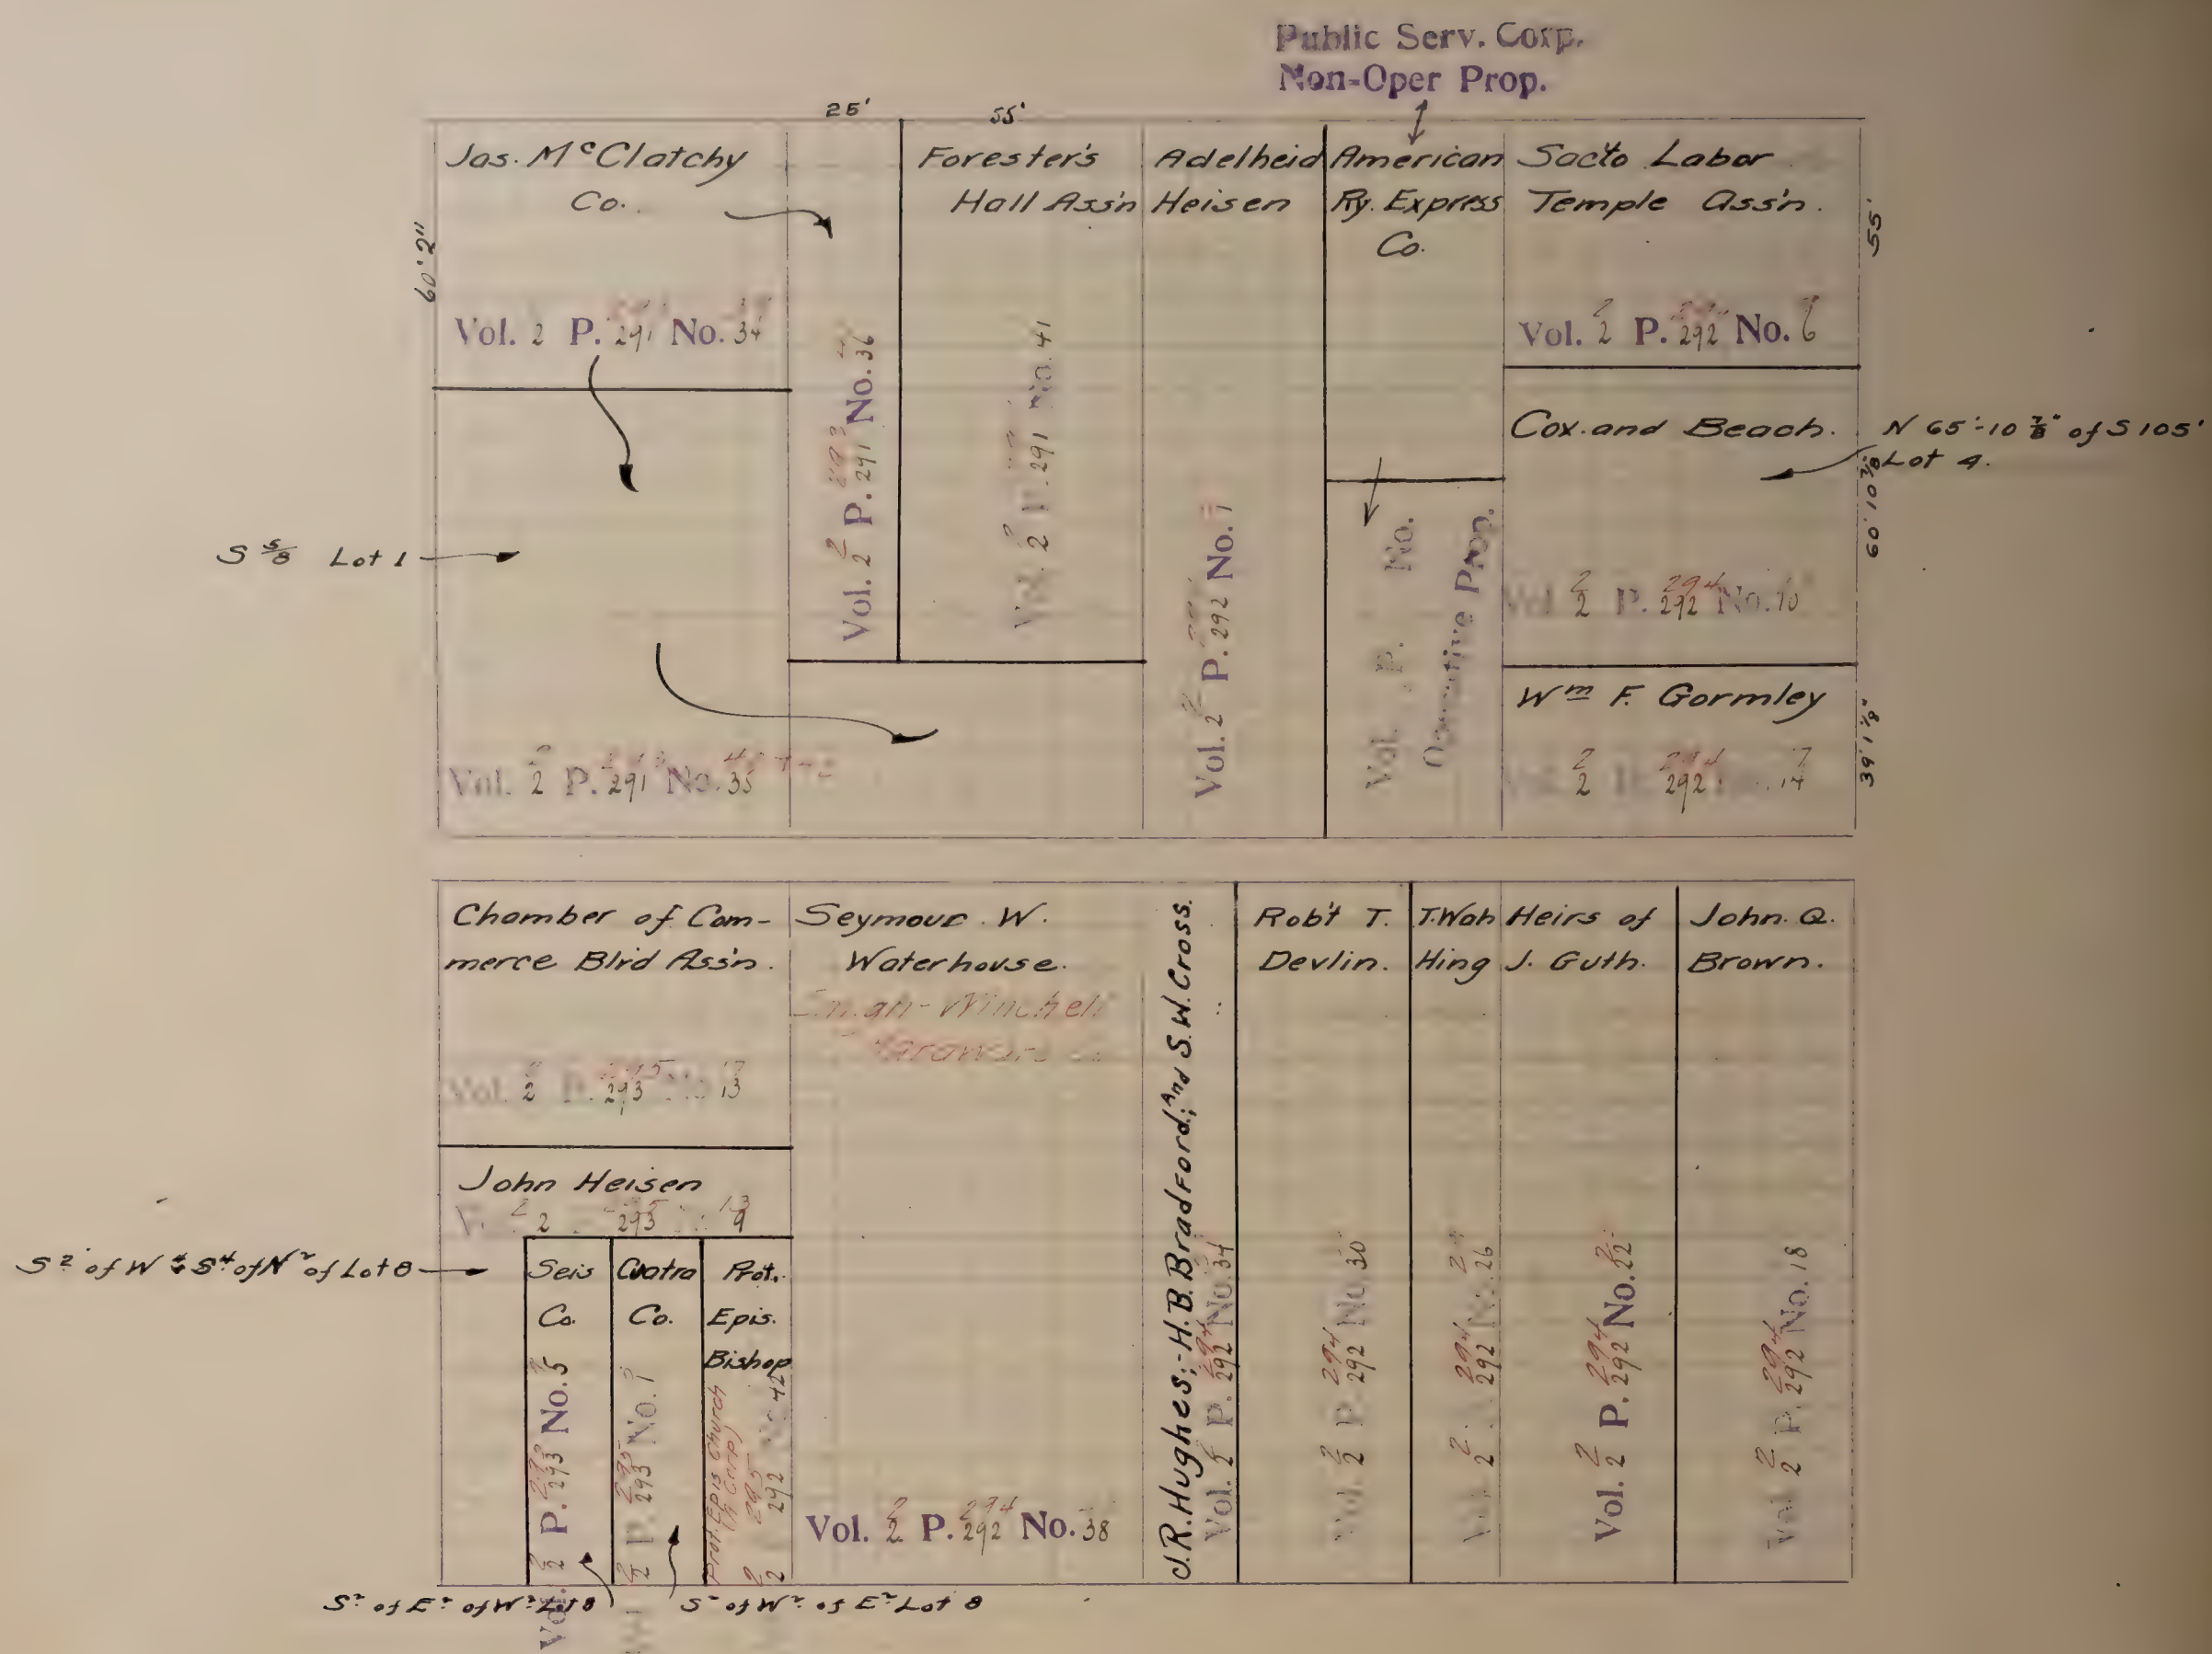 Public Serv. Corp.
Non-Oper Prop.
25'
55'
Jas. McClatchy
Co.
60' 2"
Vol. 2 P. 291 No. 34
Vol. 2 P. 291 No. 36
Forester's
Hall Ass'n
Vol. 2 P. 291 No. 41
Adelheid
Heisen
Vol. 2 P. 292 No. 1
American
Ry. Express
Co.
Vol. P. No.
Operative Prop.
Sac'to Labor
Temple Ass'n.
55'
Vol. 2 P. 292 No. 6
Cox and Beach.
N 65'-10 7/8" of S 105'
Lot 4.
60' 10 7/8
Vol. 2 P. 294 292 No. 10
Wm F. Gormley
39' 1 1/8"
2 294 292 17
S 5/8 Lot 1
Vol. 2 P. 291 No. 35
Chamber of Com-
merce Bl'd Ass'n.
Vol. 2 P. 293 No 13
John Heisen
2 293 13 9
S2 of W4 & S4 of N2 of Lot 8
Seis
Co.
Vol. 2 P. 293 No. 5
Cuatra
Co.
2 P. 295 293 No. 1
Prot.
Epis.
Bishop
Prot. Epis Church
2 295 292 42
S2 of E2 of W2 Lot 8
S2 of W2 of E2 Lot 8
Seymour W.
Waterhouse.
Winchell
Vol. 2 P. 294 292 No. 38
J.R. Hughes;-H.B. Bradford; And S.W. Cross.
Vol. 2 P. 294 292 No. 34
Rob't T.
Devlin.
Vol. 2 P. 294 292 No. 30
T. Wah
Hing
Vol. 2 294 292 No. 26
Heirs of
J. Guth.
Vol. 2 P. 294 292 No. 22
John. Q.
Brown.
Vol. 2 P. 294 292 No. 18